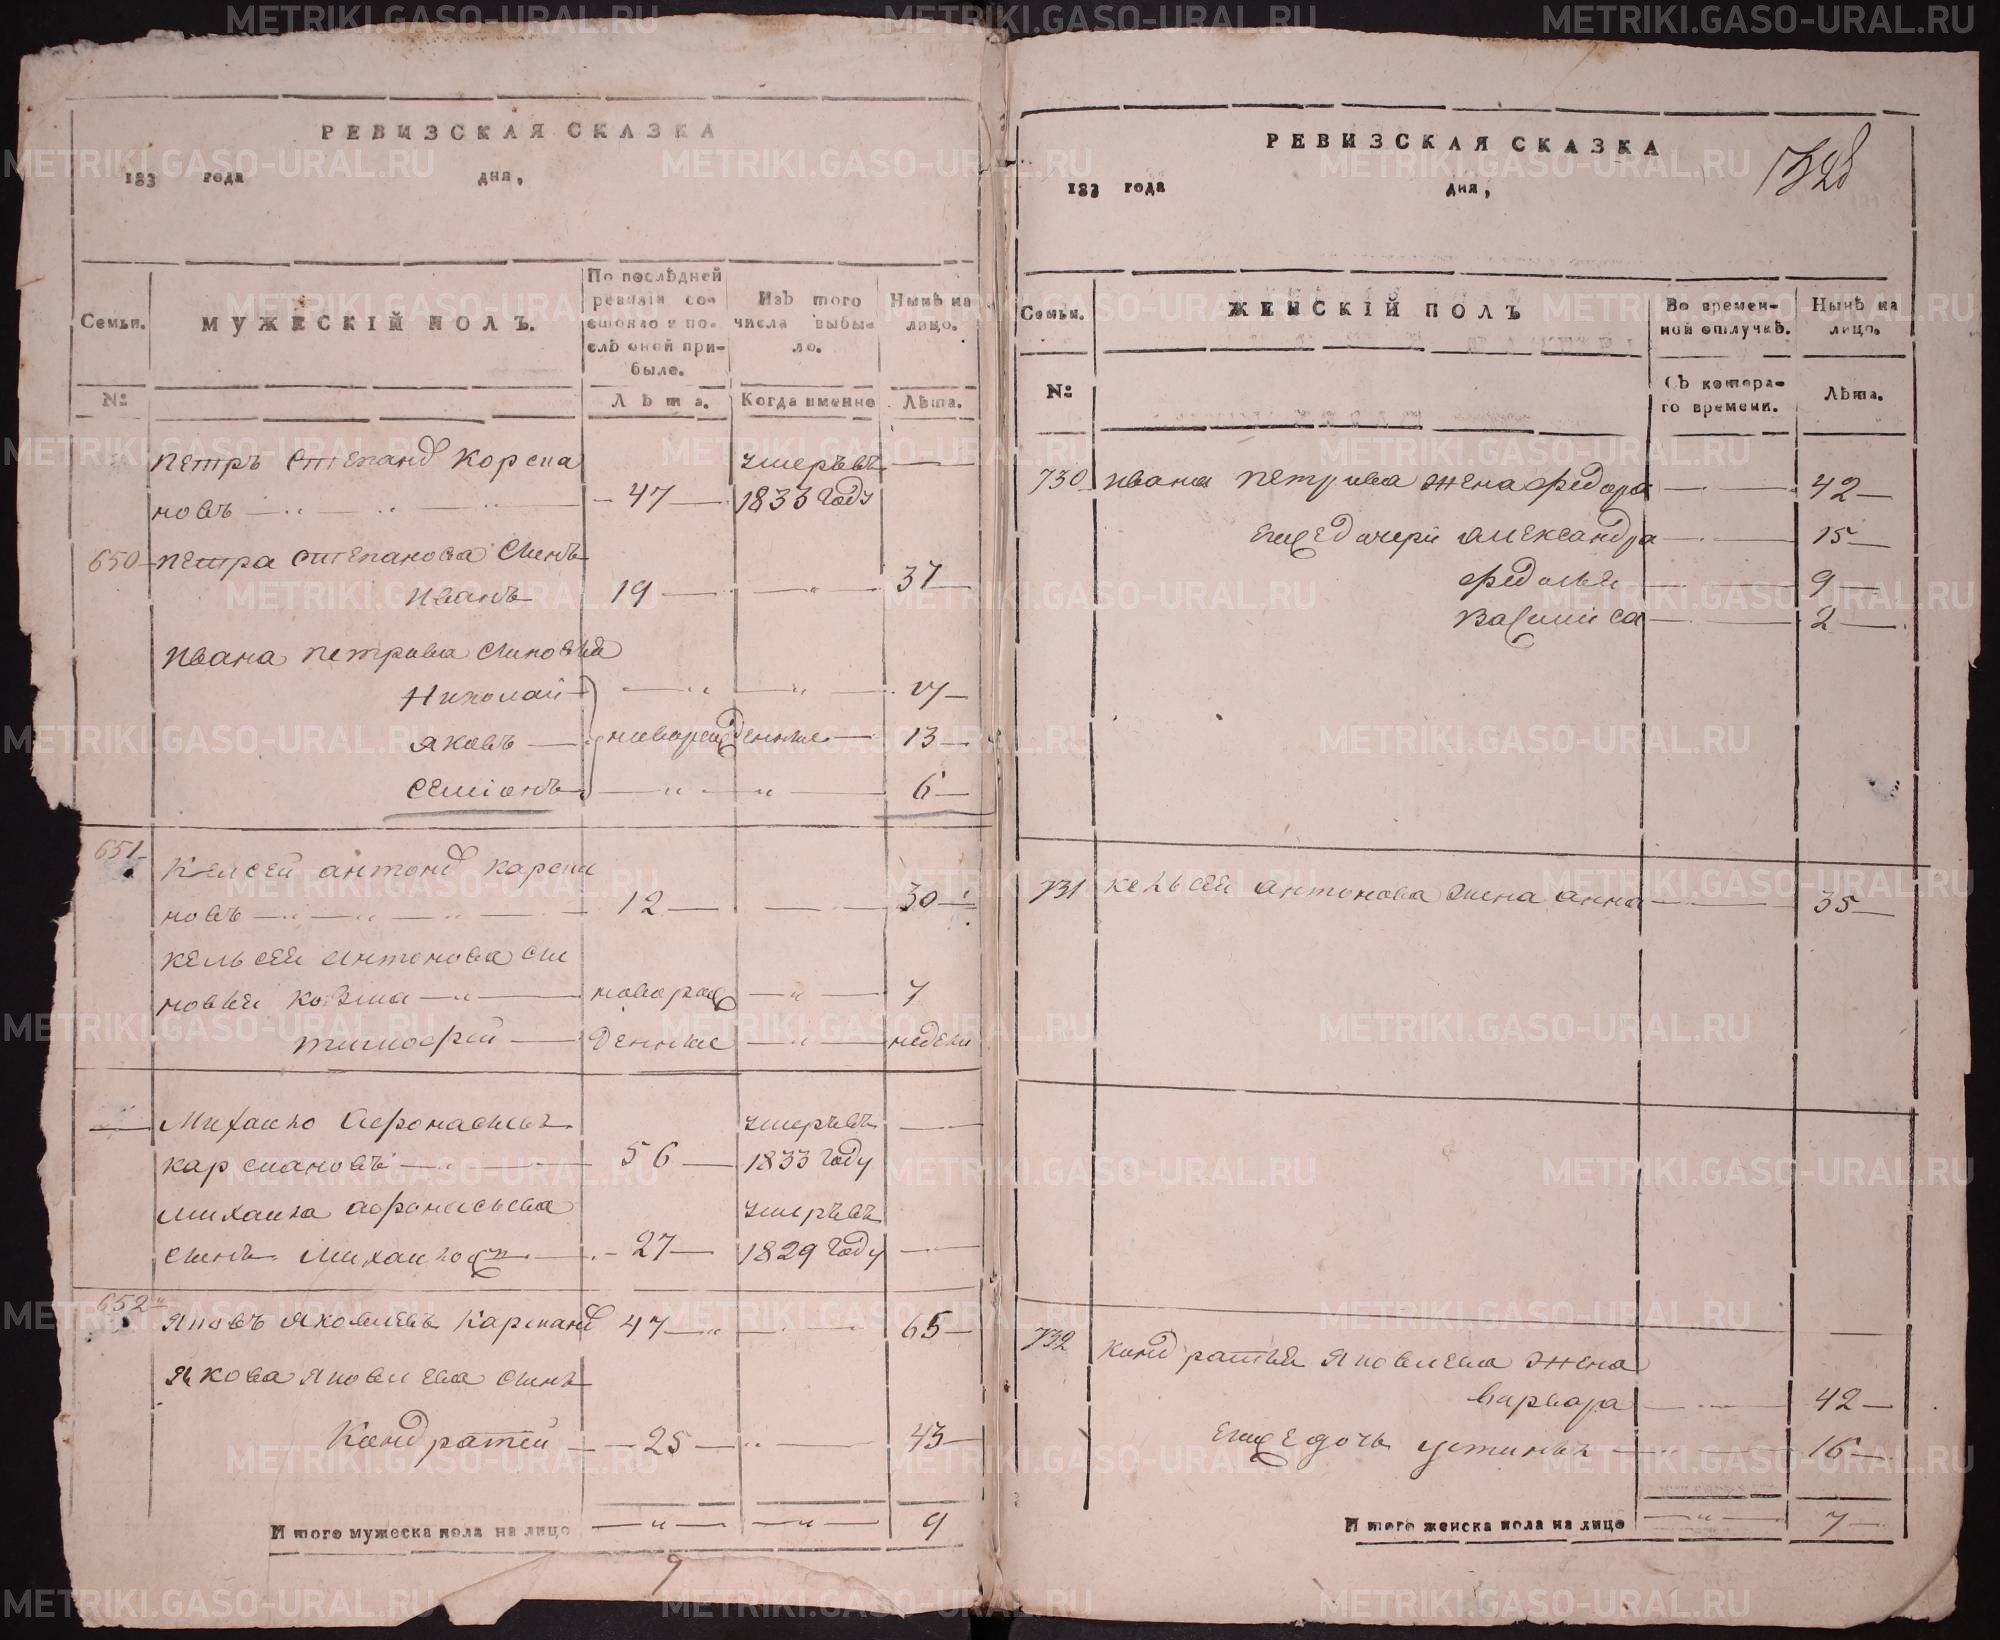 РЕВИЗСКАЯ СКАЗКА
183 года дня,
Семьи.
МУЖЕСКІЙ ПОЛЪ.
По послѣдней ревизіи состояло и послѣ оной прибыле.
Изъ того числа выбыло.
Нынѣ на лицо.
№
Лѣта.
Когда именно
Лѣта.
Петръ Степанов Корспа
новъ — 47 — умеръ въ 1833 году —
650 Петра Степанова сынъ
Иванъ 19 — 37
Ивана Петрова сыновья
Николай — 17
Яковъ — новорожденные — 13
Семіонъ — 6
651 Келсей Антонов Карспа
новъ — 12 — 30
Кельсея Антонова сы
новья Козма — новорож — 7
Тимофей — денные — недели
Михаило Афонасьевъ умеръ въ —
Карспановъ — 56 — 1833 году
Михаила Афонасьева умеръ въ
сынъ Михайло — 27 — 1829 году —
652 Яковъ Яковлевъ Карспанов 47 — 65
Якова Яковлева сынъ
Кондратей — 25 — 43
Итого мужеска пола на лицо — 9
9
РЕВИЗСКАЯ СКАЗКА
183 года дня,
728
Семьи.
ЖЕНСКІЙ ПОЛЪ
Во временной отлучкѣ.
Нынѣ на лицо.
№
Съ котораго времени.
Лѣта.
730 Ивана Петрова жена Федора — 42
Еще дочери Александра — 15
Федосья — 9
Василиса — 2
731 Кельсея Антонова жена Анна — 35
732 Кондратья Яковлева жена
Варвара — 42
Еще дочь Устинья — 16
Итого женска пола на лицо — 7
METRIKI.GASO-URAL.RU